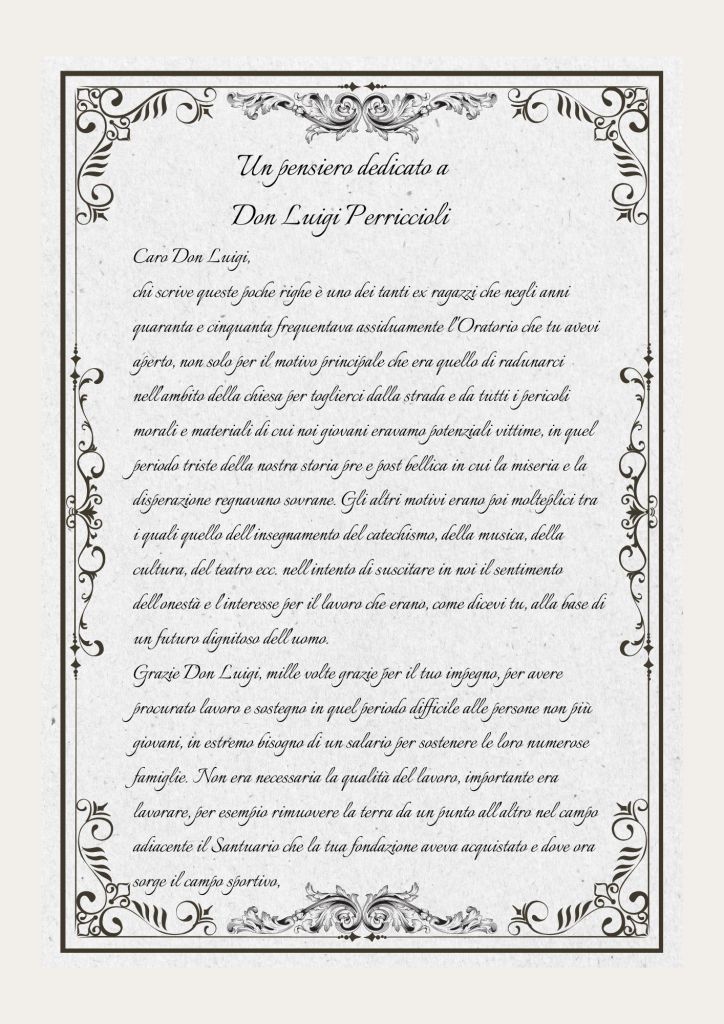 Un pensiero dedicato a
Don Luigi Perriccioli
Caro Don Luigi,
chi scrive queste poche righe è uno dei tanti ex ragazzi che negli anni
quaranta e cinquanta frequentava assiduamente l'Oratorio che tu avevi
aperto, non solo per il motivo principale che era quello di radunarci
nell'ambito della chiesa per toglierci dalla strada e da tutti i pericoli
morali e materiali di cui noi giovani eravamo potenziali vittime, in quel
periodo triste della nostra storia pre e post bellica in cui la miseria e la
disperazione regnavano sovrane. Gli altri motivi erano poi molteplici tra
i quali quello dell'insegnamento del catechismo, della musica, della
cultura, del teatro ecc. nell'intento di suscitare in noi il sentimento
dell'onestà e l'interesse per il lavoro che erano, come dicevi tu, alla base di
un futuro dignitoso dell'uomo.
Grazie Don Luigi, mille volte grazie per il tuo impegno, per avere
procurato lavoro e sostegno in quel periodo difficile alle persone non più
giovani, in estremo bisogno di un salario per sostenere le loro numerose
famiglie. Non era necessaria la qualità del lavoro, importante era
lavorare, per esempio rimuovere la terra da un punto all'altro nel campo
adiacente il Santuario che la tua fondazione aveva acquistato e dove ora
sorge il campo sportivo,